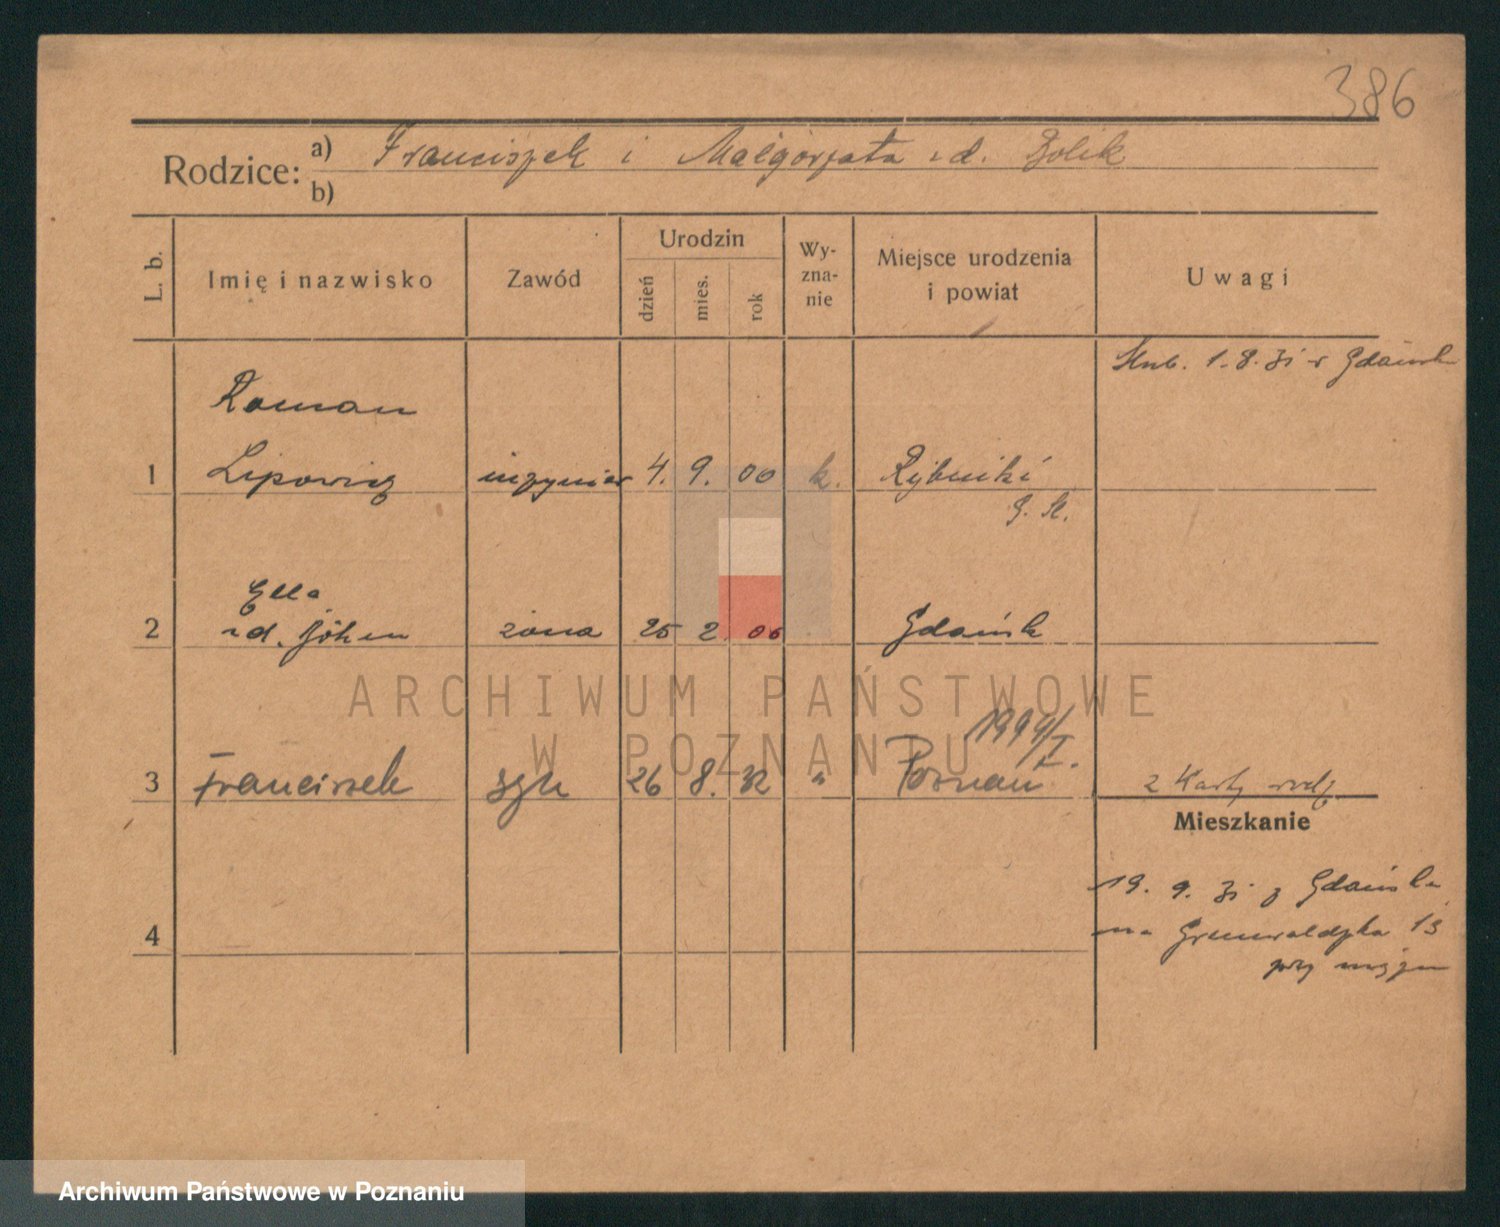 386
Rodzice:
a) Franciszek i Małgorzata z d. Bolik
b)
L. b.
Imię i nazwisko
Zawód
Urodzin
dzień
mies.
rok
Wy-
zna-
nie
Miejsce urodzenia
i powiat
Uwagi
Ślub. 1.8.31 w Gdańsku
Roman
1 Lipowicz inżynier 4. 9. 00 k. Rybniki
G. Śl.
Ella
2 z d. Böhm żona 25 2 06 Gdańsk
ARCHIWUM PAŃSTWOWE
W POZNANIU
1994/I.
3 Franciszek syn 26 8. 32 " Poznań
z Karty rodz.
Mieszkanie
19. 9. 31 z Gdańska
na Grunwaldzka 13
przy mężu
4
Archiwum Państwowe w Poznaniu